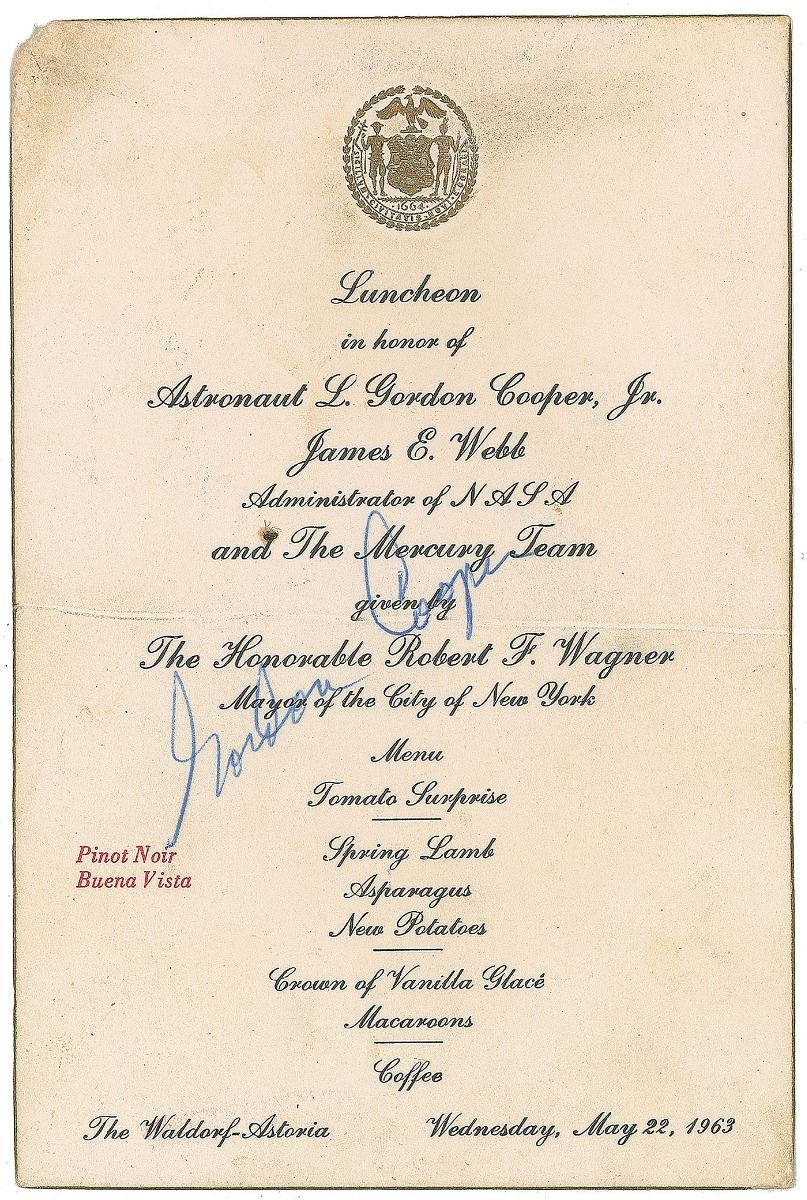 SIGILLUM CIVITATIS NOVI EBORACI
1664
Luncheon
in honor of
Astronaut L. Gordon Cooper, Jr.
James E. Webb
Administrator of N A S A
and The Mercury Team
given by
The Honorable Robert F. Wagner
Mayor of the City of New York
Gordon Cooper
Menu
Tomato Surprise
Pinot Noir
Buena Vista
Spring Lamb
Asparagus
New Potatoes
Crown of Vanilla Glacé
Macaroons
Coffee
The Waldorf-Astoria
Wednesday, May 22, 1963